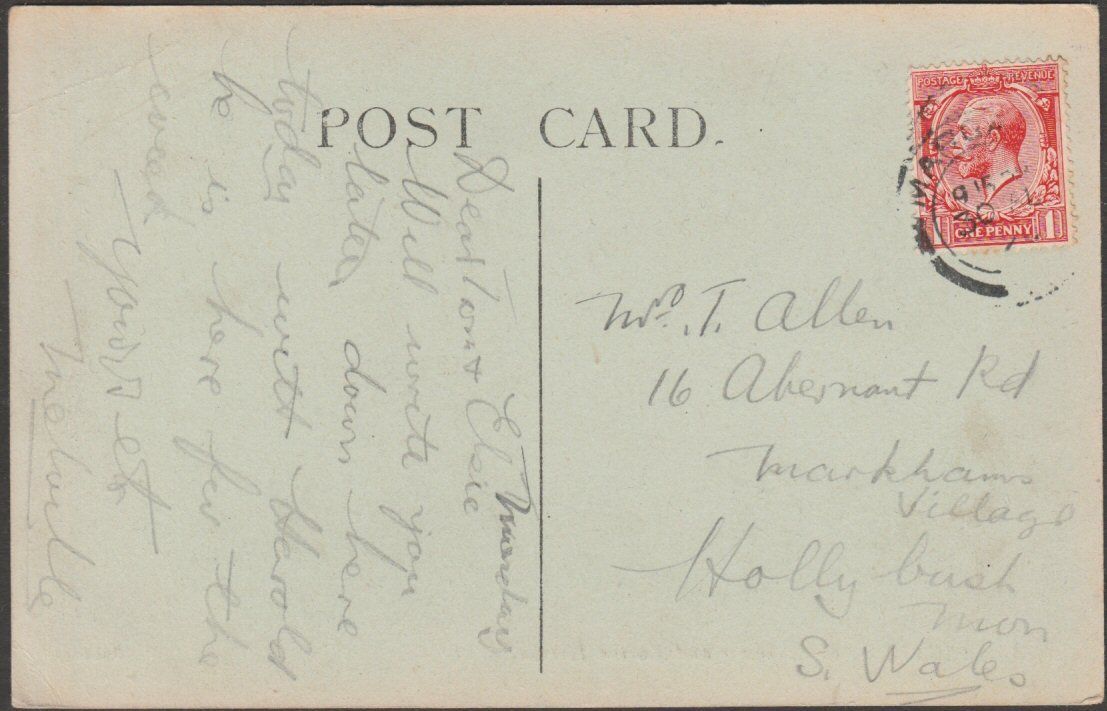 POST CARD.
POSTAGE REVENUE
ONE PENNY 1
Monday
Dear Tom & Elsie
Will write you
later, down here
today with Harold
he is here for the
week
Yours etc
Melville
Mr. T. Allen
16 Abernant Rd
Markhams
Village
Hollybush
Mon
S. Wales